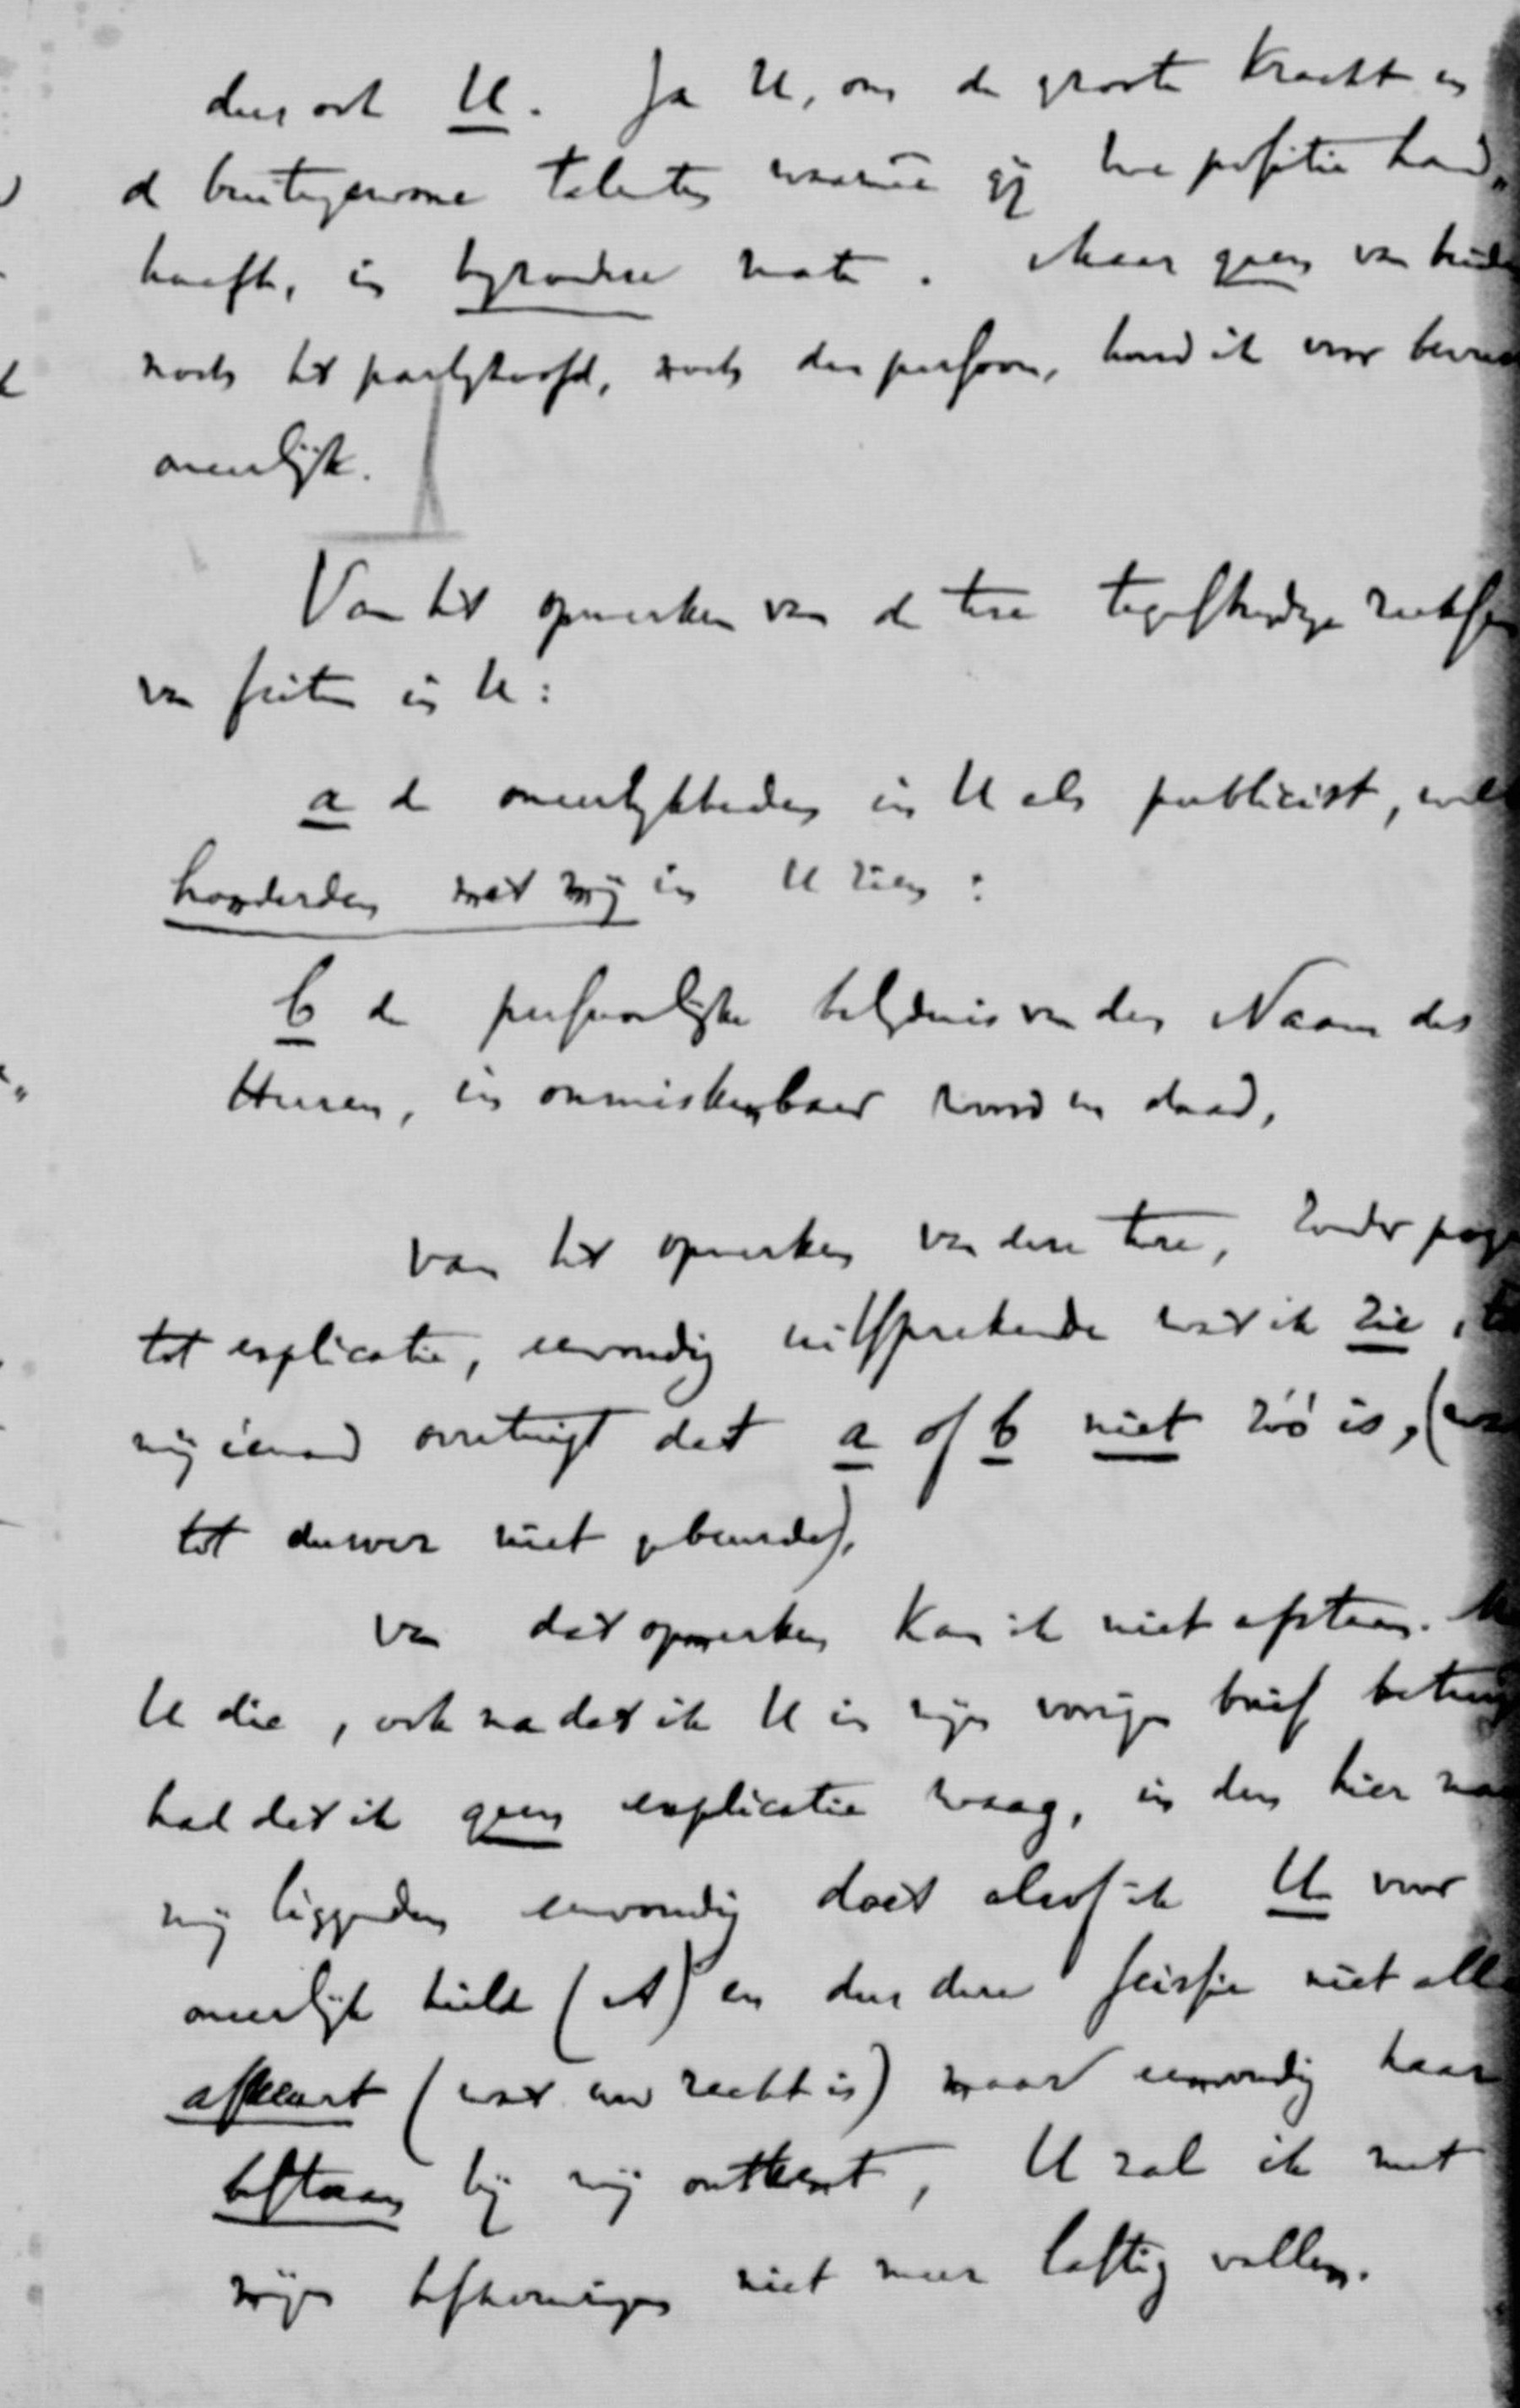 dus ook U. Ja U, om de groote kracht en
de buitengewone talenten waarmee gij Uwe positie hand„
haaft, in byzondere mate. Maar geen van beiden
noch het partyhoofd, noch den persoon, houd ik voor bewust
oneerlijk.
Van het opmerken van de twee tegenstrydige reeksen
van feiten in U:
a de oneerlykheden in U als publicist, welke
honderden met mij in U zien:
b de persoonlijke belijdenis van den Naam des
Heeren, in onmiskenbaar woord en daad,
van het opmerken van deze twee, zonder poging
tot explicatie, eenvoudig uitsprekende wat ik zie,
mij iemand overtuigt dat a of b niet zóó is, (wat
tot dusver niet gebeurde),
van dat opmerken kan ik niet afstaan.
U die, ook nadat ik U in mijn vorigen brief betuigd
had dat ik geen explicatie waag, in den hier voor
mij liggenden eenvoudig doet alsof ik U voor
oneerlijk hield (A) en dus deze scissie niet alleen
afkeurt (wat uw recht is) maar eenvoudig haar
bestaan bij mij ontkent, U zal ik met
mijn beschouwingen niet meer lastig vallen.